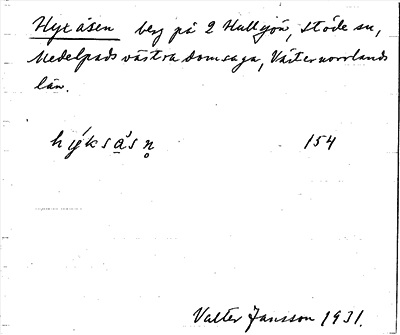 Hyxåsen berg på 2 Hullsjön, Stöde sn,
Medelpads västra domsaga, Västernorrlands
län.
hýksås̀n̥ 154
Valter Jansson 1931.